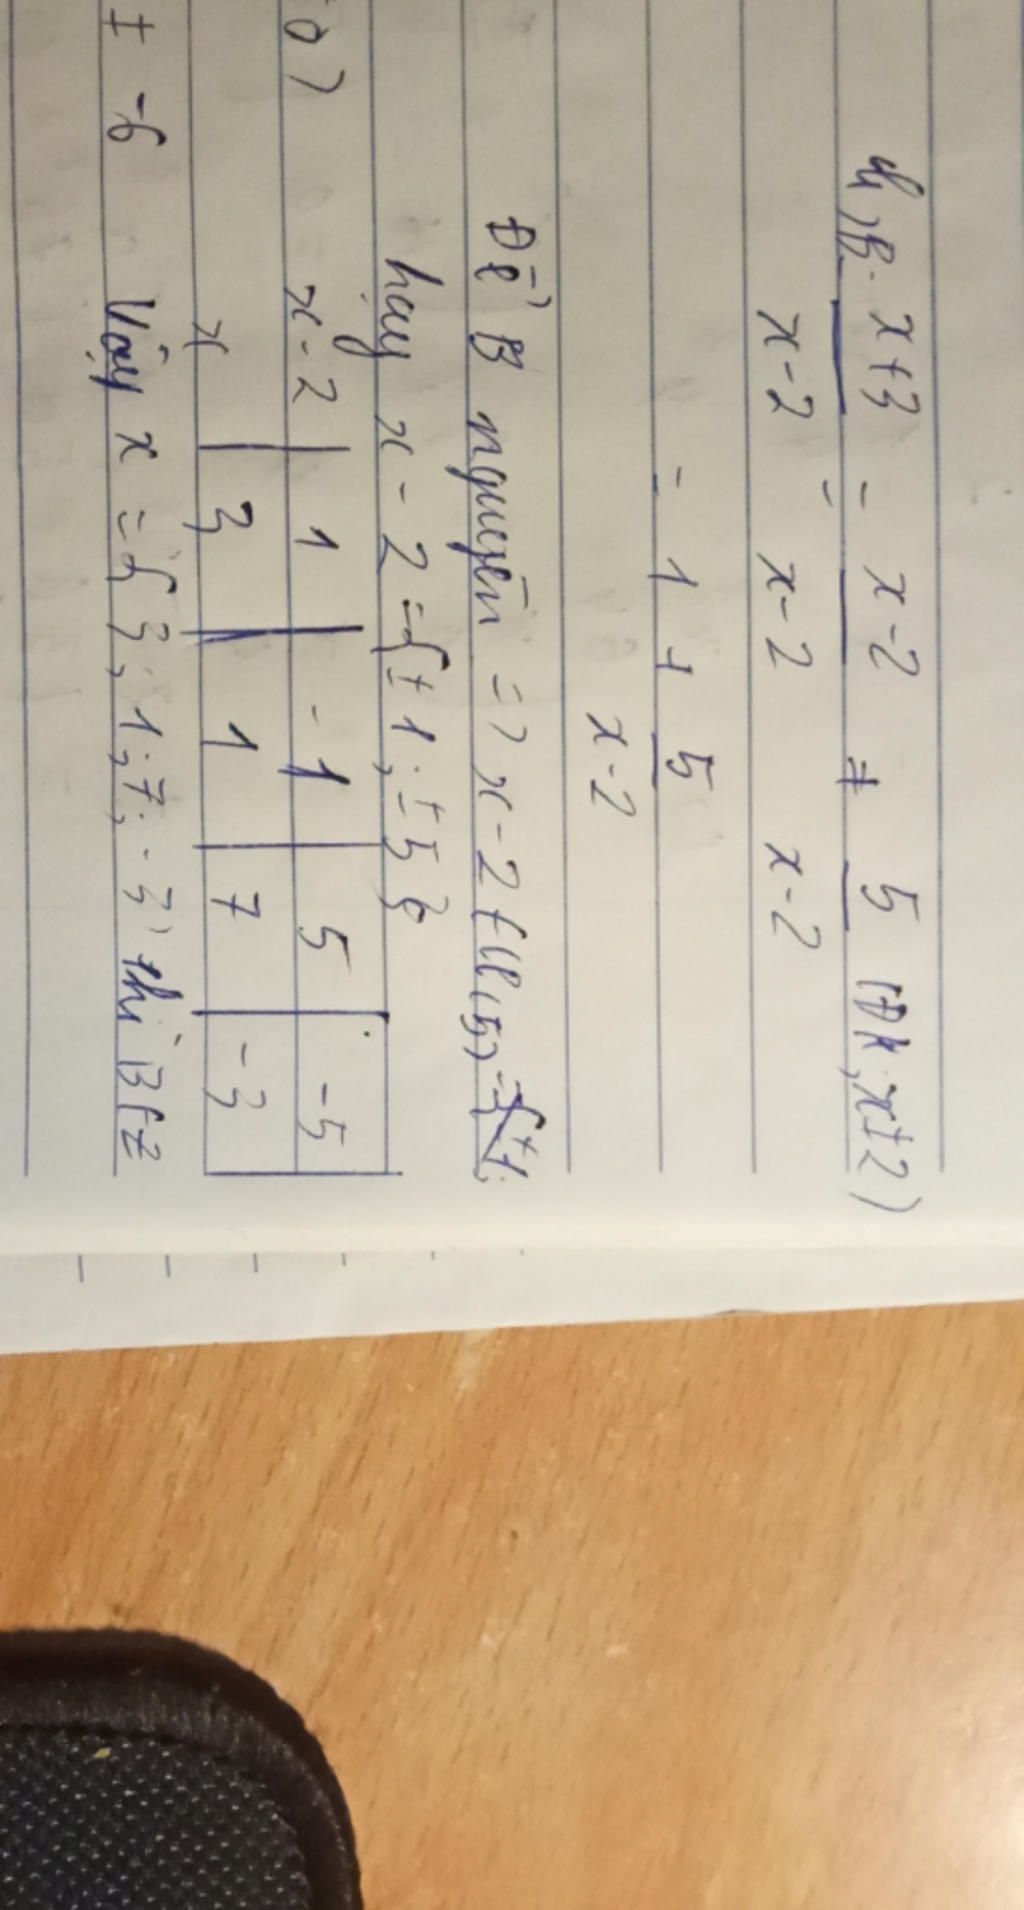 B = x+3 = x-2 + 5 (ĐK: x≠2)
x-2 x-2 x-2
= 1 + 5
x-2
Để B nguyên => x-2 ∈ Ư(5)
hay x-2 = {±1; ±5}
x-2 | 1 | -1 | 5 | -5
x | 3 | 1 | 7 | -3
Vậy x = {3; 1; 7; -3} thì B ∈ Z
0)
≠ -6